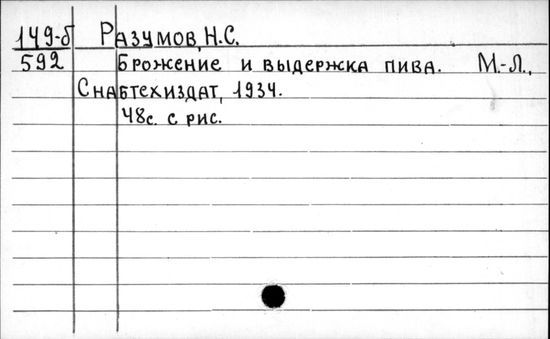 149-б Разумов, Н.С.
592 Брожение и выдержка пива. М.-Л.,
Снабтехиздат, 1934.
48с. с рис.